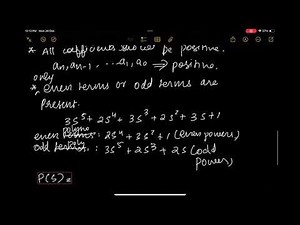 * All coefficients should be positive.
an, an-1, ... a1, a0 → positive.
only
* even terms or odd terms are
present.
3s⁵ + 2s⁴ + 3s³ + 2s² + 3s + 1
even terms : 2s⁴ + 3s² + 1 (even powers)
odd : 3s⁵ + 2s³ + 2s (odd
powers)
P(s) =